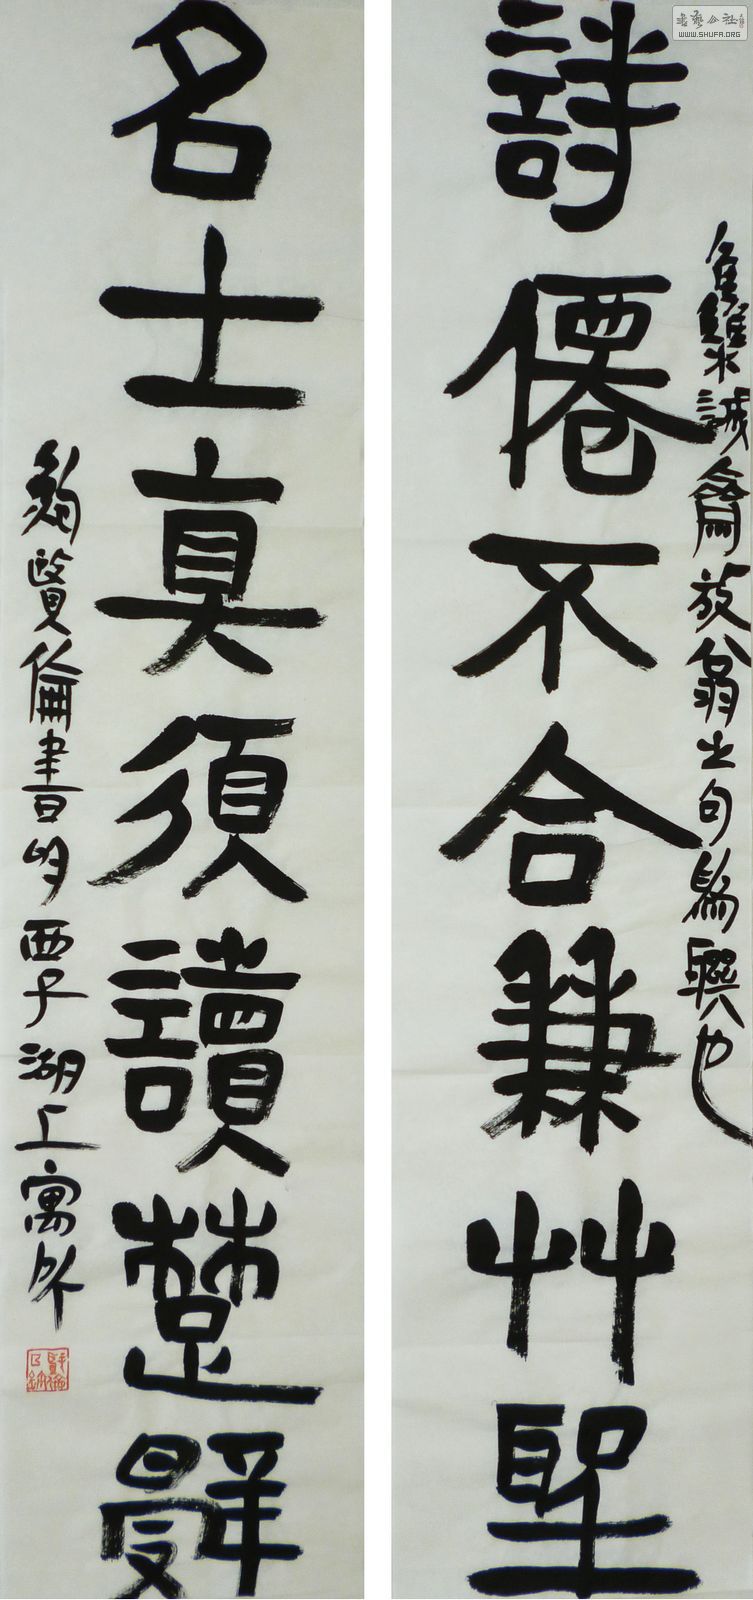 書藝公社
WWW.SHUFA.ORG
詩僊不合兼艸聖
雧誠齋放翁之句為聯也
名士真須讀楚辭
賢倫書西子湖上寓